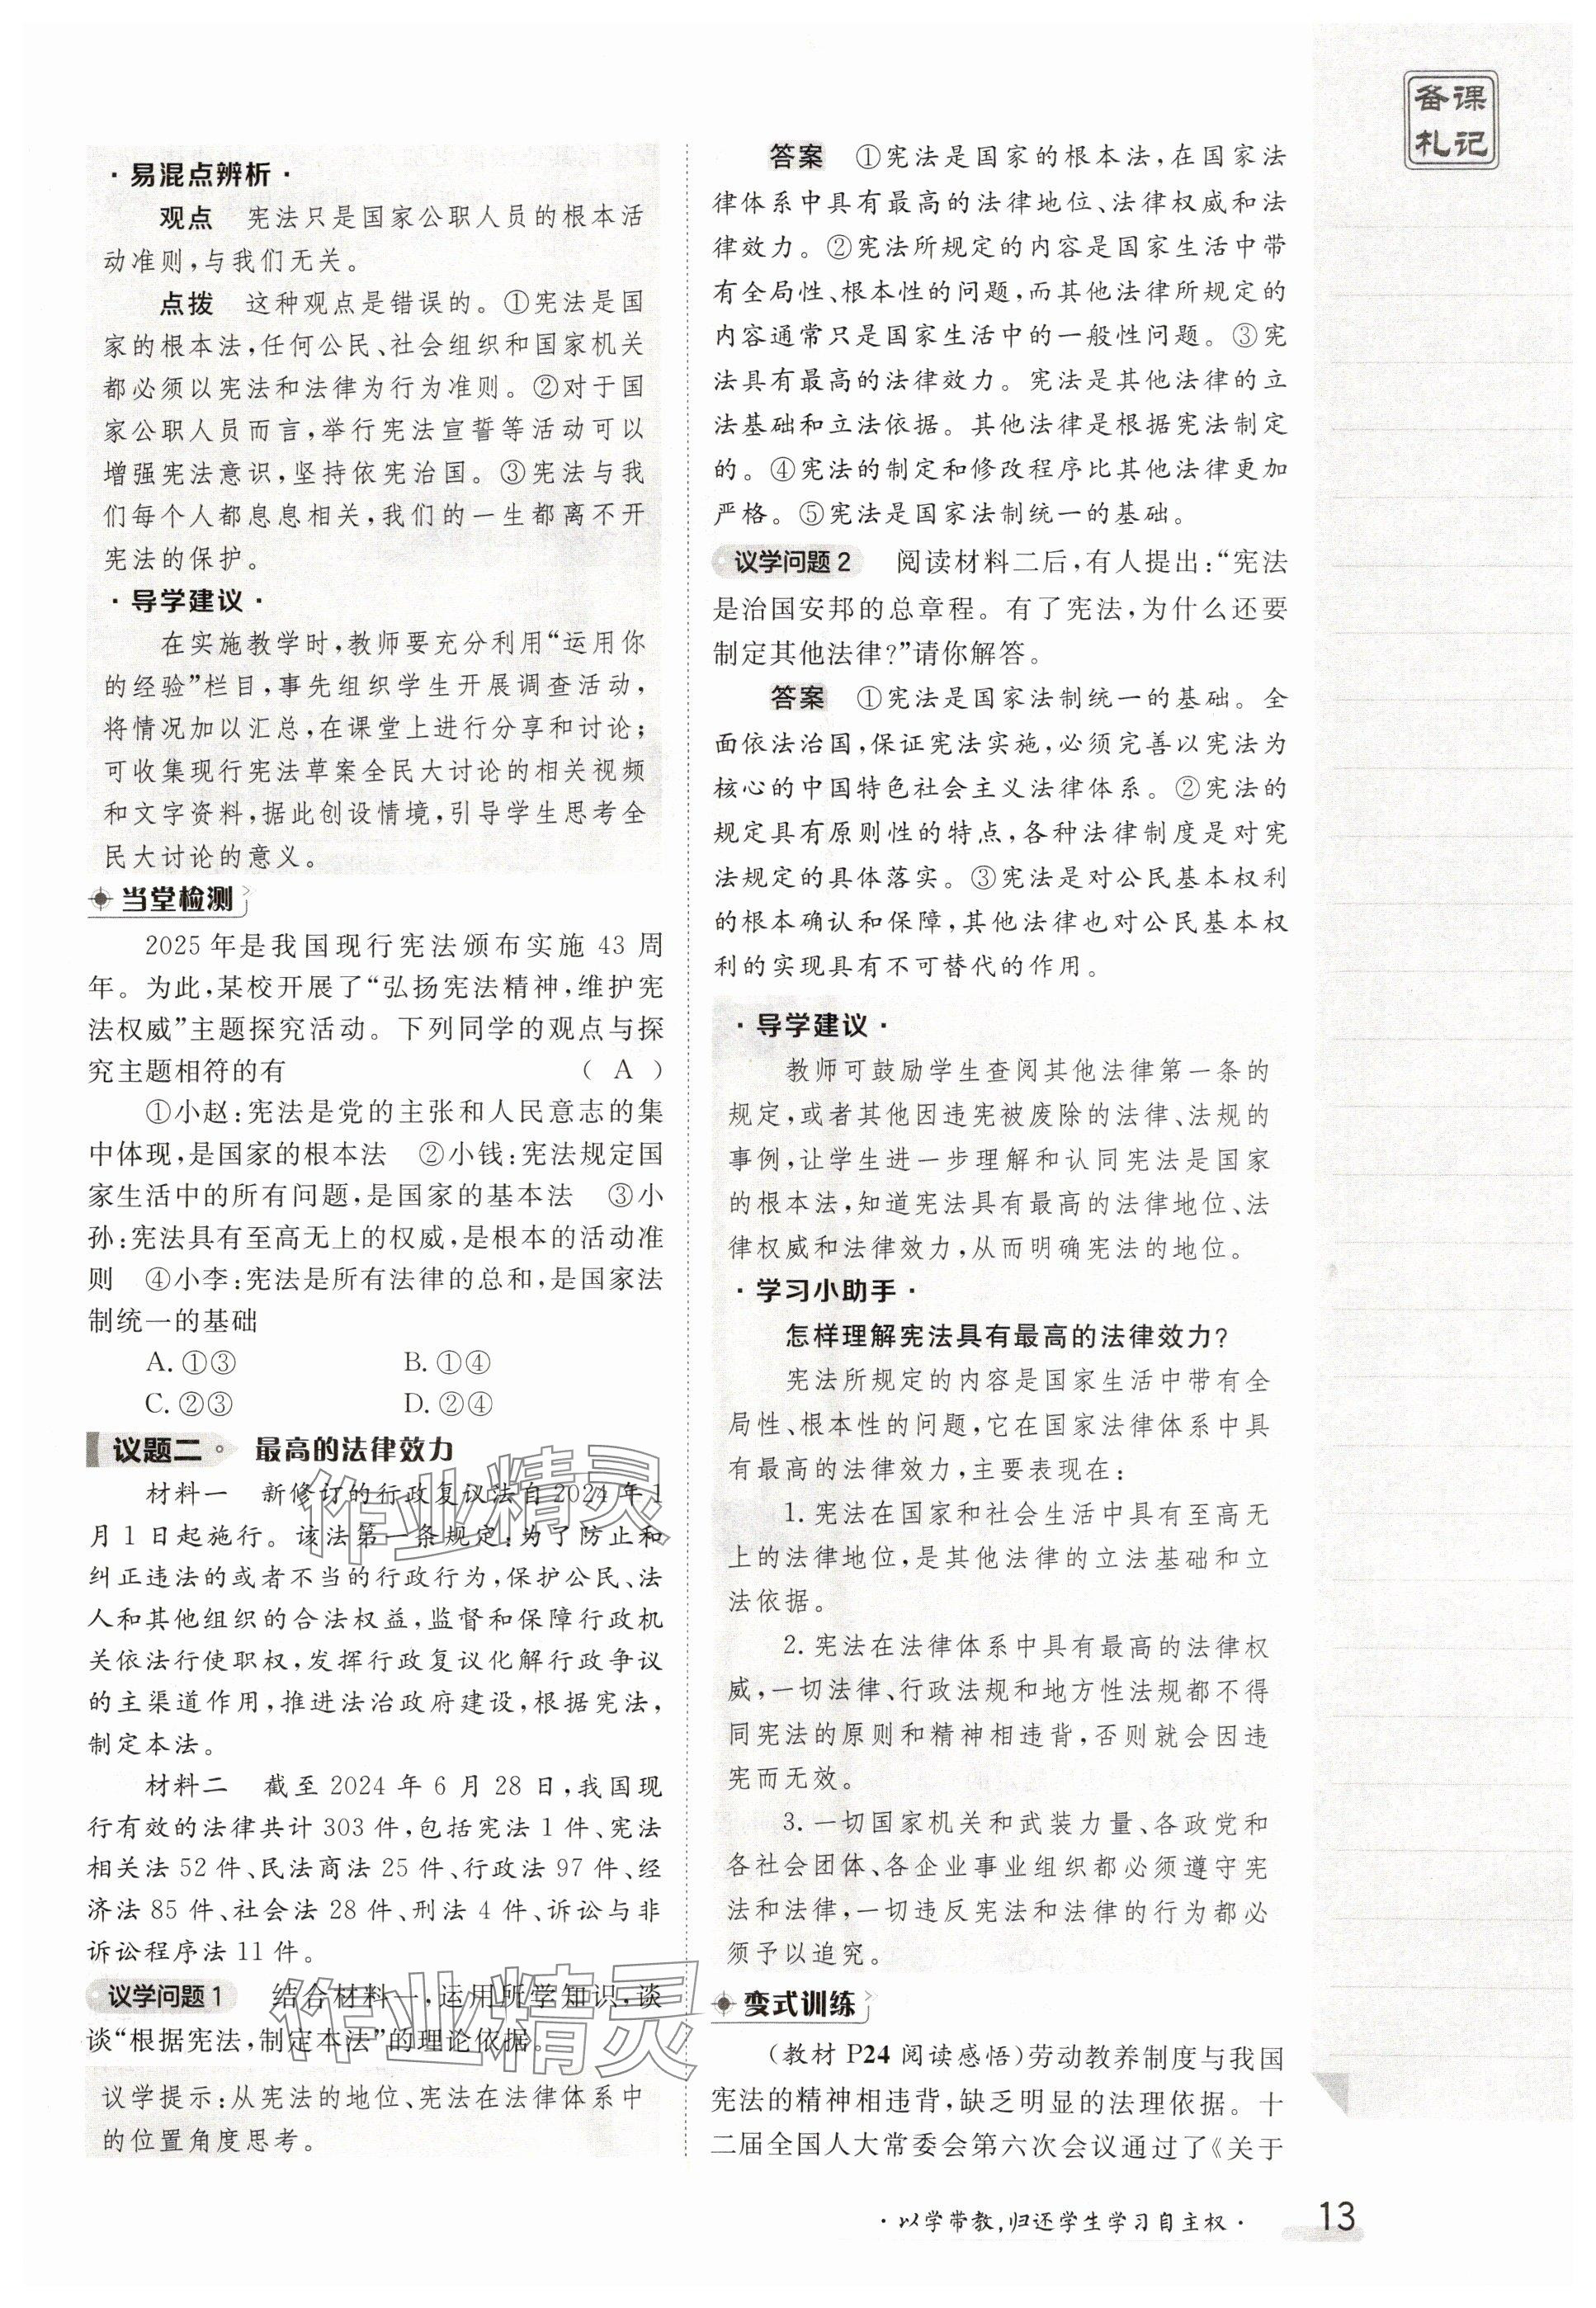 备课
札记
·易混点辨析·
观点 宪法只是国家公职人员的根本活
动准则,与我们无关。
点拨 这种观点是错误的。①宪法是国
家的根本法,任何公民、社会组织和国家机关
都必须以宪法和法律为行为准则。②对于国
家公职人员而言,举行宪法宣誓等活动可以
增强宪法意识,坚持依宪治国。③宪法与我
们每个人都息息相关,我们的一生都离不开
宪法的保护。
·导学建议·
在实施教学时,教师要充分利用“运用你
的经验”栏目,事先组织学生开展调查活动,
将情况加以汇总,在课堂上进行分享和讨论;
可收集现行宪法草案全民大讨论的相关视频
和文字资料,据此创设情境,引导学生思考全
民大讨论的意义。
当堂检测
2025年是我国现行宪法颁布实施43周
年。为此,某校开展了“弘扬宪法精神,维护宪
法权威”主题探究活动。下列同学的观点与探
究主题相符的有 ( A )
①小赵:宪法是党的主张和人民意志的集
中体现,是国家的根本法 ②小钱:宪法规定国
家生活中的所有问题,是国家的基本法 ③小
孙:宪法具有至高无上的权威,是根本的活动准
则 ④小李:宪法是所有法律的总和,是国家法
制统一的基础
A. ①③ B. ①④
C. ②③ D. ②④
议题二 最高的法律效力
材料一 新修订的行政复议法自2024年1
月1日起施行。该法第一条规定:为了防止和
纠正违法的或者不当的行政行为,保护公民、法
人和其他组织的合法权益,监督和保障行政机
关依法行使职权,发挥行政复议化解行政争议
的主渠道作用,推进法治政府建设,根据宪法,
制定本法。
材料二 截至2024年6月28日,我国现
行有效的法律共计303件,包括宪法1件、宪法
相关法52件、民法商法25件、行政法97件、经
济法85件、社会法28件、刑法4件、诉讼与非
诉讼程序法11件。
议学问题1 结合材料一,运用所学知识,谈
谈“根据宪法,制定本法”的理论依据。
议学提示:从宪法的地位、宪法在法律体系中
的位置角度思考。
答案 ①宪法是国家的根本法,在国家法
律体系中具有最高的法律地位、法律权威和法
律效力。②宪法所规定的内容是国家生活中带
有全局性、根本性的问题,而其他法律所规定的
内容通常只是国家生活中的一般性问题。③宪
法具有最高的法律效力。宪法是其他法律的立
法基础和立法依据。其他法律是根据宪法制定
的。④宪法的制定和修改程序比其他法律更加
严格。⑤宪法是国家法制统一的基础。
议学问题2 阅读材料二后,有人提出:“宪法
是治国安邦的总章程。有了宪法,为什么还要
制定其他法律?”请你解答。
答案 ①宪法是国家法制统一的基础。全
面依法治国,保证宪法实施,必须完善以宪法为
核心的中国特色社会主义法律体系。②宪法的
规定具有原则性的特点,各种法律制度是对宪
法规定的具体落实。③宪法是对公民基本权利
的根本确认和保障,其他法律也对公民基本权
利的实现具有不可替代的作用。
·导学建议·
教师可鼓励学生查阅其他法律第一条的
规定,或者其他因违宪被废除的法律、法规的
事例,让学生进一步理解和认同宪法是国家
的根本法,知道宪法具有最高的法律地位、法
律权威和法律效力,从而明确宪法的地位。
·学习小助手·
怎样理解宪法具有最高的法律效力?
宪法所规定的内容是国家生活中带有全
局性、根本性的问题,它在国家法律体系中具
有最高的法律效力,主要表现在:
1. 宪法在国家和社会生活中具有至高无
上的法律地位,是其他法律的立法基础和立
法依据。
2. 宪法在法律体系中具有最高的法律权
威,一切法律、行政法规和地方性法规都不得
同宪法的原则和精神相违背,否则就会因违
宪而无效。
3. 一切国家机关和武装力量、各政党和
各社会团体、各企业事业组织都必须遵守宪
法和法律,一切违反宪法和法律的行为都必
须予以追究。
变式训练
(教材P24阅读感悟)劳动教养制度与我国
宪法的精神相违背,缺乏明显的法理依据。十
二届全国人大常委会第六次会议通过了《关于
·以学带教,归还学生学习自主权·
13
作业精灵
作业精灵